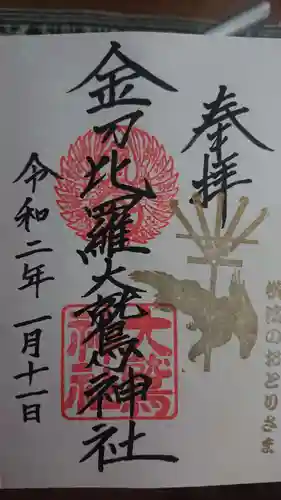 奉拝
金刀比羅大鷲神社
令和二年一月十一日
大鷲
神社
のおとりさま